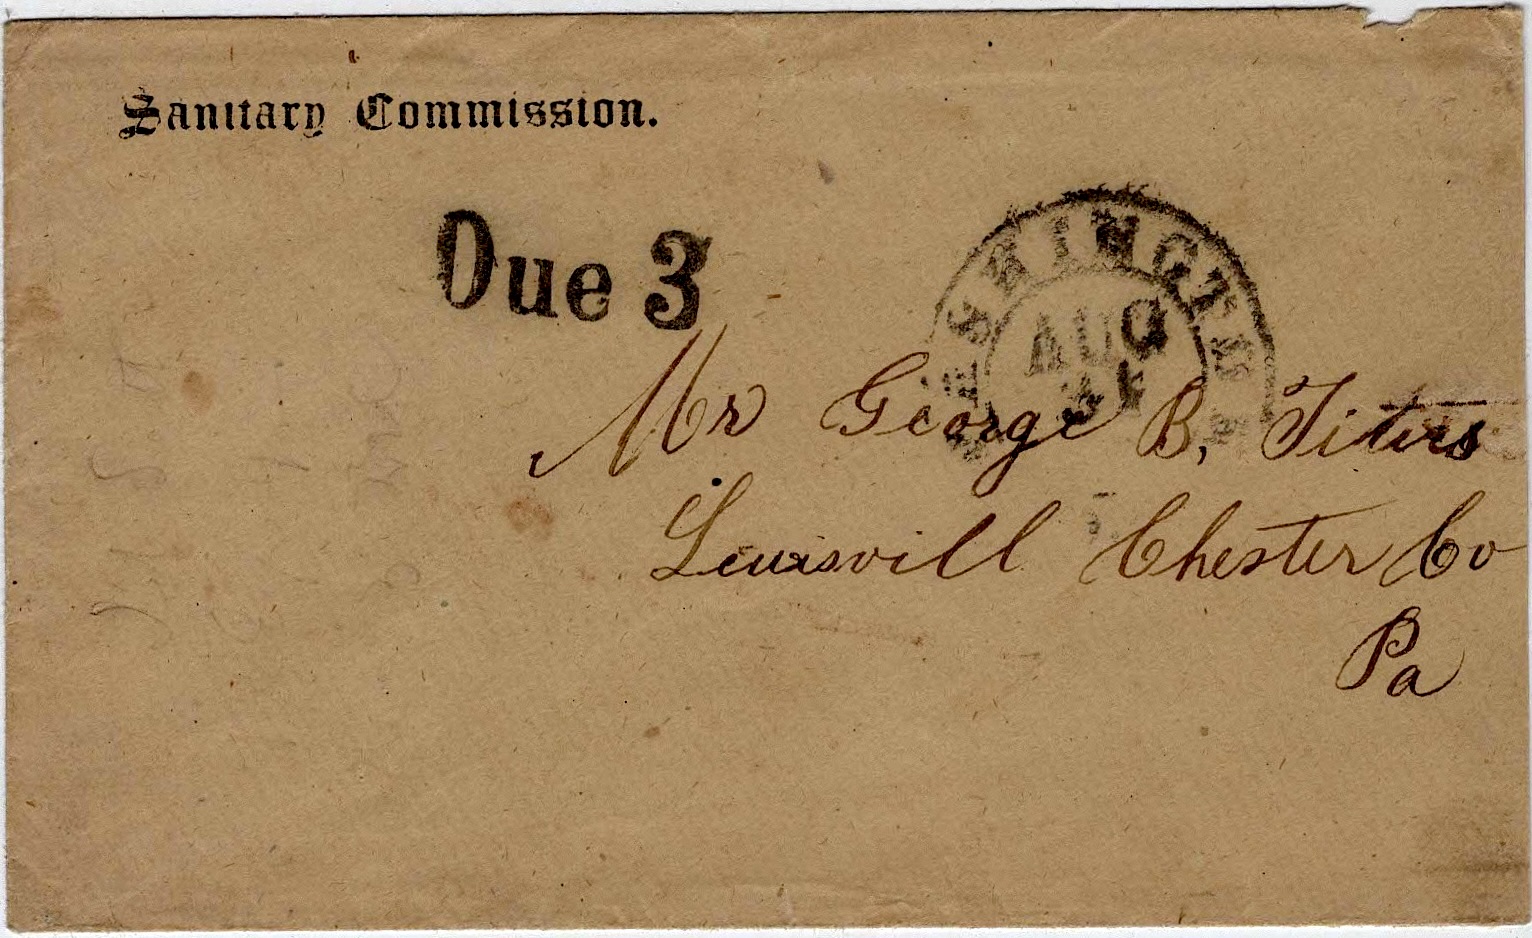 Sanitary Commission.
Due 3
WASHINGTON
AUG
31
Mr George B, Titus
Lewisvill Chester Co
Pa